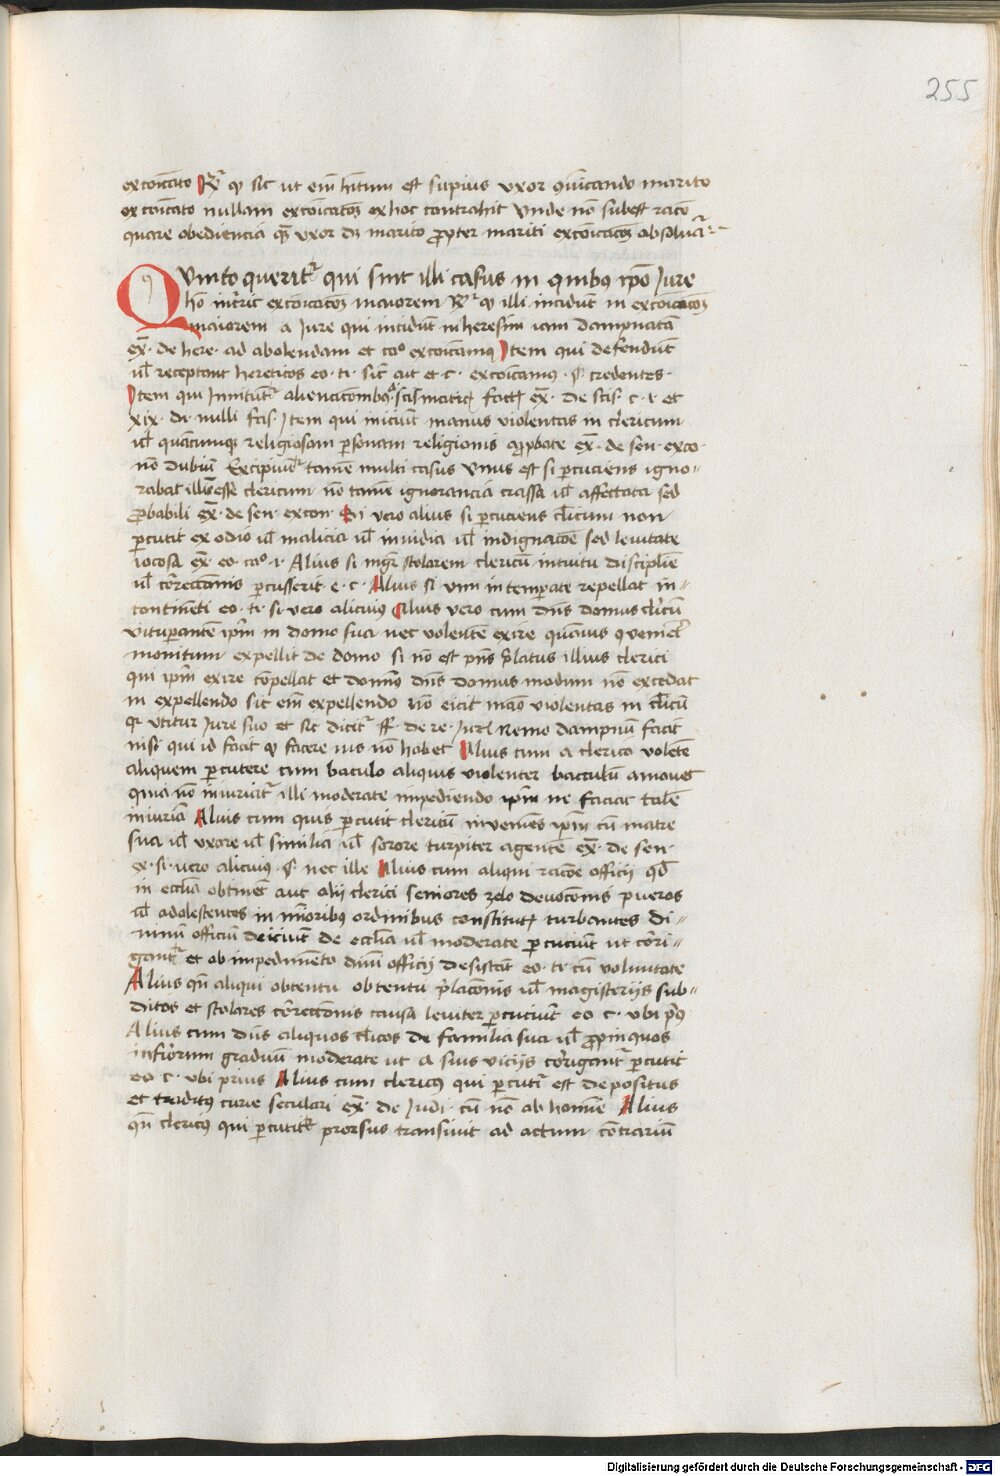 255
excōicato Rͬ qͥ sic ut em̄ hītum est supius vxor q̄uicando marito
excōicato nullam excōicacōȝ ex hoc contrahit Vnde nō subest racō
quare obediencia qȝ vxor dȝ marito ꝓpter mariti excōicacōȝ absoluat͛
Quinto querit͛ qui sint illi casus in quibus ipō Jure
hō inc̄rit excōicacōȝ maiorem Rͬ qͥ illi incidūt in excōicacōȝ
maiorem a Jure qui incidūt in heresim iam dampnatā
ex̄ · de here · ad abolendam et caͦ excōicamus Jtem qui defendūt
ul̄ receptant hereticos eo · ti · sic̄ ait et c · excōicamus · §· credentes ·
Jtem qui Innitūt͛ alienacōnibus a scismaticis factis ex̄ · de scis · c · i · et
xix · di · nulli fas · Jtem qui iniciūt manus violentas in clericum
ul̄ quācumque religiosam ꝑsonam religionis apꝓbate ex̄ · de sen · exco ·
nō dubiū Excipiūt͛ tamē multi casus Vnus est si ꝑcuciens igno-
rabat illū esse clericum nō tamē ignorancia crassa ul̄ affectata sed
ꝓbabili ex̄ · de sen · excon · Si vero alius si ꝑcuciens cl̄icum non
ꝑcutit ex odio ul̄ malicia ul̄ inuidia ul̄ indignacōe sed leuitate
iocosa ex̄ · eo · caͦ · i · Alius si mgr̄ scolarem clericū intuitu discipline
ul̄ cōrrectionis ꝑcusserit · e · c · Alius si vim intemperate repellat in-
continēti eo · ti · si vero alicuius Alius vero cum dn̄s domus cl̄icū
vituꝑantē ipm̄ in domo sua nec volentē exire quāuis
monitum expellit de domo si nō est pn̄s p̄latus illius clerici
qui ipm̄ exire cōpellat et dn̄s domus modum nō excedat
in expellendo sic em̄ expellendo nō eicit manō violentas in cl̄icū
qr vtitur Jure suo et sic dicit͛ ff · de re · Jur Nemo dampnū facit
nisi qui id facit qͥ facere ius nō habet Alius cum a clerico volētē
aliquem ꝑcutere cum baculo aliquis violenter baculū amouet
quia nō iniuriat͛ illi moderate impediendo ipm̄ ne faciat talē
iniuriā Alius cum quis ꝑcutit clericū inveniēs ipm̄ cū matre
sua ul̄ vxore ul̄ similia ul̄ sorore turpiter agentē ex̄ · de sen ·
ex · si · vero alicuius · §· nec ille Alius cum aliqui racōe officii qd̄
in ecclīa obtinēt aut alii clerici seniores zelo deuocōnis pueros
ul̄ adolescentes in mīoribus ordinibus constitutos turbantes di-
uinū officiū deiciūt de ecclīa ul̄ moderate ꝑcuciūt ut corri-
gant͛ et ob impedimēto diuī officii desistāt eo · ti · cū voluntate
Alius qn̄ aliqui obtentu obtentu p̄lacōnis ul̄ magisteriis sub-
ditos et scolares cōrrectōnis causa leuiter ꝑcuciūt eo c · ubi p̄us
Alius cum dn̄s aliquos cl̄icos de familia sua ul̄ ꝓpinquos
inferiorum graduū moderate ut a suis viciis corrigant͛ ꝑcutit
eo c · ubi prius Alius cum clericus qui ꝑcutit͛ est depositus
et traditus curie seculari ex̄ · de Judi · cū nō ab homine Alius
qn̄ clericus qui ꝑcutit͛ prorsus transiuit ad actum cōtrariū
Digitalisierung gefördert durch die Deutsche Forschungsgemeinschaft - DFG